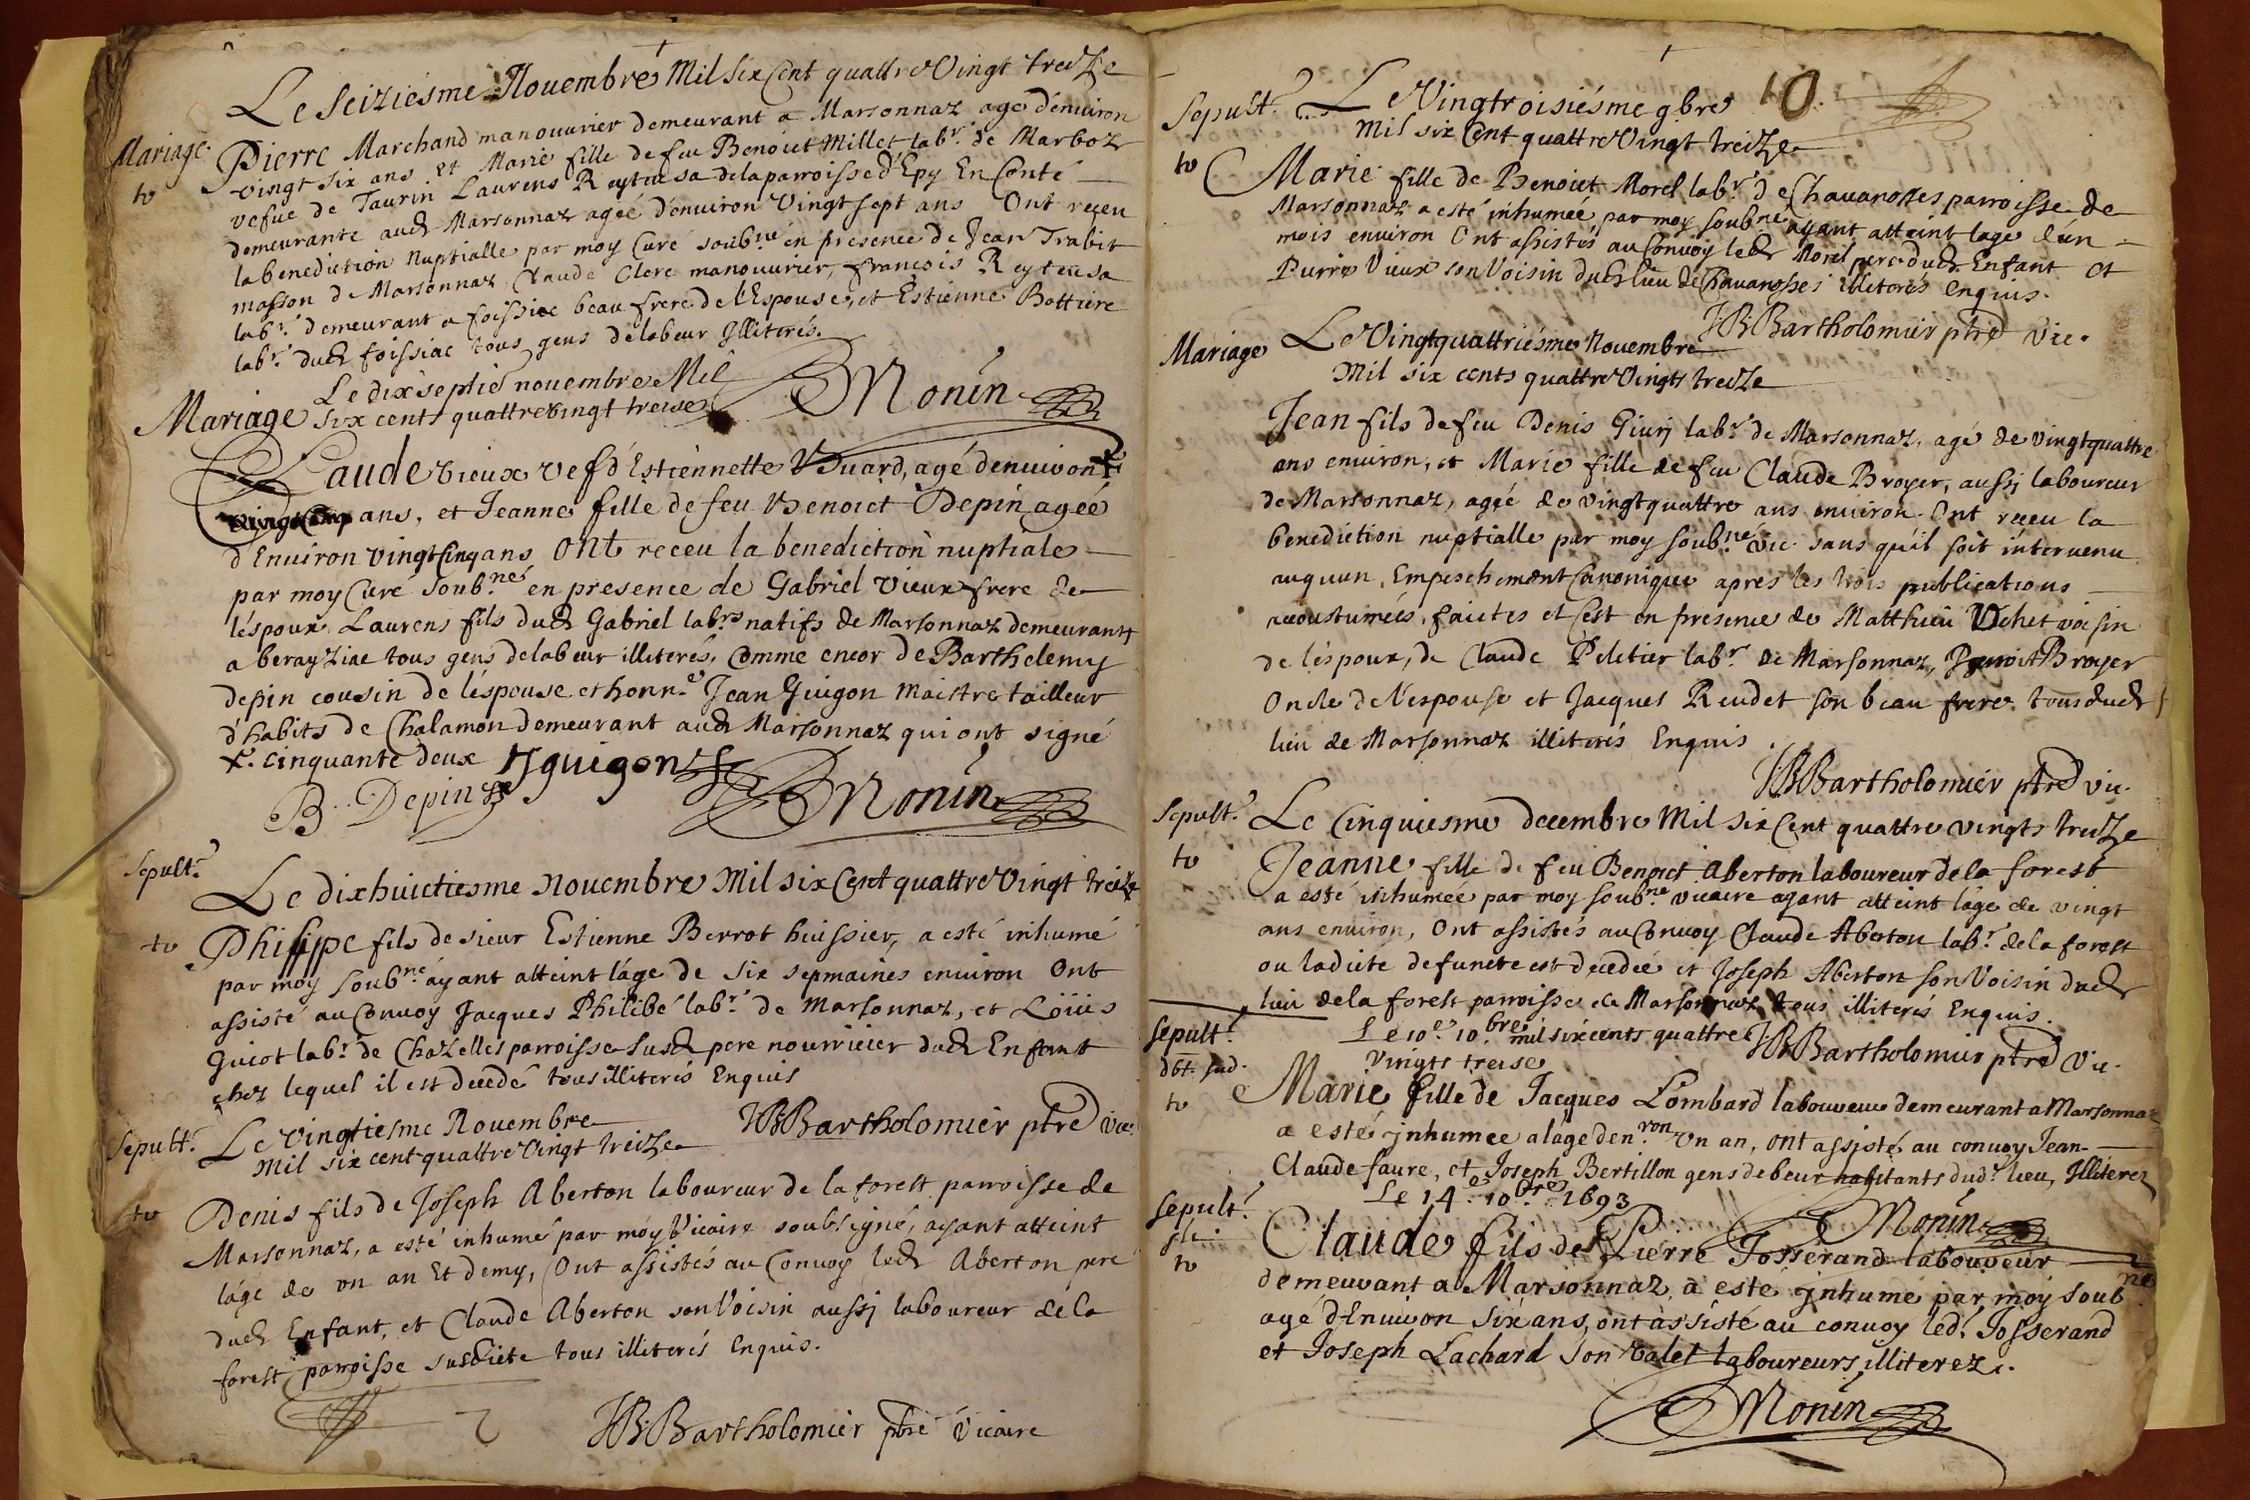 Le seiziesme Nouembre Mil six Cent quattre Vingt treize
Mariage. Pierre Marchand manouurier demeurant a Marsonnaz agé d'enuiron
to vingt six ans et Marie fille de feu Benoict Millet labr. de Marboz
vefue de Taurin Laurens Reytiesa de la parroisse d'Epy En Conté
demeurante aud Marsonnaz agée d'enuiron Vingt sept ans Ont reçeu
la benediction Nuptialle par moy Curé soubné en presence de Jean Trabit
masson de Marsonnaz Claude Clerc manouurier, françois Reytiesa
labr. demeurant a foissiac beau frere de l'Espouse, et Estienne Bottiere
labr. dud foissiac tous gens de labeur Jlliterés.
Le dix septie nouembre Mil
Monin
Mariage six cents quattre vingt treise
Claude vieux vef d'Estiennette Vuard, agé denuiron
ans, et Jeanne fille de feu Benoict Depin agée
d'Enuiron vingt Cinq ans Ont receu la benediction nuptiale
par moy Curé soub.né en presence de Gabriel Vieux frere de
léspoux Laurens fils dud Gabriel labrs natifs de Marsonnaz demeurant
a berayziac tous gens de labeur illiterés, Comme encor de Barthelemy
depin cousin de léspouse et honn.e Jean Guigon Maistre tailleur
d'habits de Chalamon demeurant aud Marsonnaz qui ont signé
x. cinquante deux Jguigon
B. Depin Monin
Sepult.
Le dixhuictiesme Nouembre Mil six Cent quattre Vingt treize
to Philippe fils de sieur Estienne Berrot huissier, a esté inhumé
par moy soubné ayant atteint l'age de six sepmaines enuiron Ont
assisté au Conuoy Jacques Philibé labr. de Marsonnaz, et Loüis
Guicot labr. de Chazelles parroisse susd pere nourricier dud Enfant
chez lequel il est decedé tous illiterés Enquis
Sepult. Le Vingtiesme Nouembre JB Bartholomier ptre vic.
Mil six cent quattre Vingt treize
to Denis fils de Joseph Aberton laboureur de la forest parroisse de
Marsonnaz, a esté inhumé par moy Vicaire soubsigné, ayant atteint
lage de vn an Et demy, Ont assistés au Conuoy led Aberton pere
dud Enfant, et Claude Aberton son Voisin aussj laboureur de la
forest parroisse susdicte tous illiterés Enquis.
JB Bartholomier ptre Vicaire
Sepult. Le Vingtroisiésme 9bre 10
Mil six Cent quattre Vingt treize
to Marie fille de Benoict Morel labr. de Chauanosses parroisse de
Marsonnaz a esté inhumée par moy soubné ayant atteint lage dun
mois enuiron Ont assistés au Conuoy led Morel pere dud Enfant et
Pierre Vieux son Voisin dud lieu de Chauanosses illiterés Enquis.
JB Bartholomier ptre Vic.
Mariage Le Vingtquattriésme Nouembre
Mil six cents quattre Vingts treize
Jean fils de feu Denis Giurj labr. de Marsonnaz, agé de vingtquattre
ans enuiron, et Marie fille de feu Claude Broyer, aussj laboureur
de Marsonnaz, agée de vingtquattre ans enuiron. Ont receu la
benediction nuptialle par moy soubné vic. sans qu'il soit interuenu
auquun Empeschement Canonique apres les trois publications
accoustumées, faictes et c'est en presence de Matthieu Vchet voisin
de léspoux, de Claude Peletier labr. de Marsonnaz, Benoit Broyer
Oncle de l'espouse et Jacques Reudet son beau frere tous dud
lieu de Marsonnaz illiterés Enquis
JB Bartholomier ptre vic.
Sepult. Le Cinquiesme decembre Mil six Cent quattre vingts treize
to Jeanne fille de feu Benoict Aberton laboureur de la forest
a esté inhumée par moy soubné vicaire ayant atteint lâge de vingt
ans enuiron, Ont assistés au Conuoy Claude Aberton labr. de la forest
ou ladicte defuncte est decedée et Joseph Aberton son Voisin dud
lieu de la forest parroisse de Marsonnaz tous illiterés Enquis.
Sepult. Le 10e 10bre mil sixcents quattre JB Bartholomier ptre Vic.
vingts treise
to Marie fille de Jacques Lombard laboureur demeurant a Marsonnaz
a esté jnhumee alâge den.ron vn an, ont assisté au conuoy Jean
Claude faure, et Joseph Bertillon gens de beur habitants dud. lieu, Jlliterez
Sepult. Le 14e 10bre 1693 Monin
to Claude fils de Pierre Josserand laboureur
demeurant a Marsonnaz, a esté jnhumé par moy soubné
agé d'Enuiron six ans, ont assisté au conuoy led. Josserand
et Joseph Lachard son valet laboureurs, illiterez.
Monin